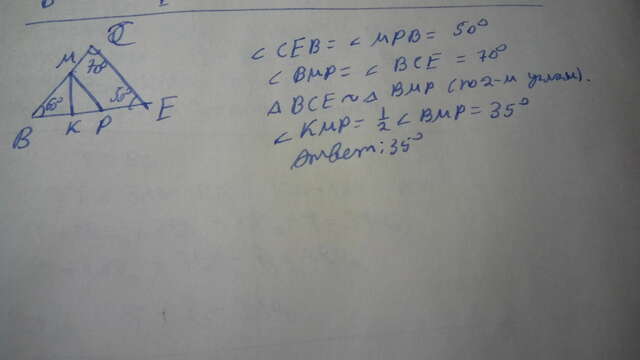 C
M
70°
60°
50°
B
K
P
E
∠ CEB = ∠ MPB = 50°
∠ BMP = ∠ BCE = 70°
△ BCE ~ △ BMP (по 2-м углам).
∠ KMP = 1/2 ∠ BMP = 35°
Ответ: 35°